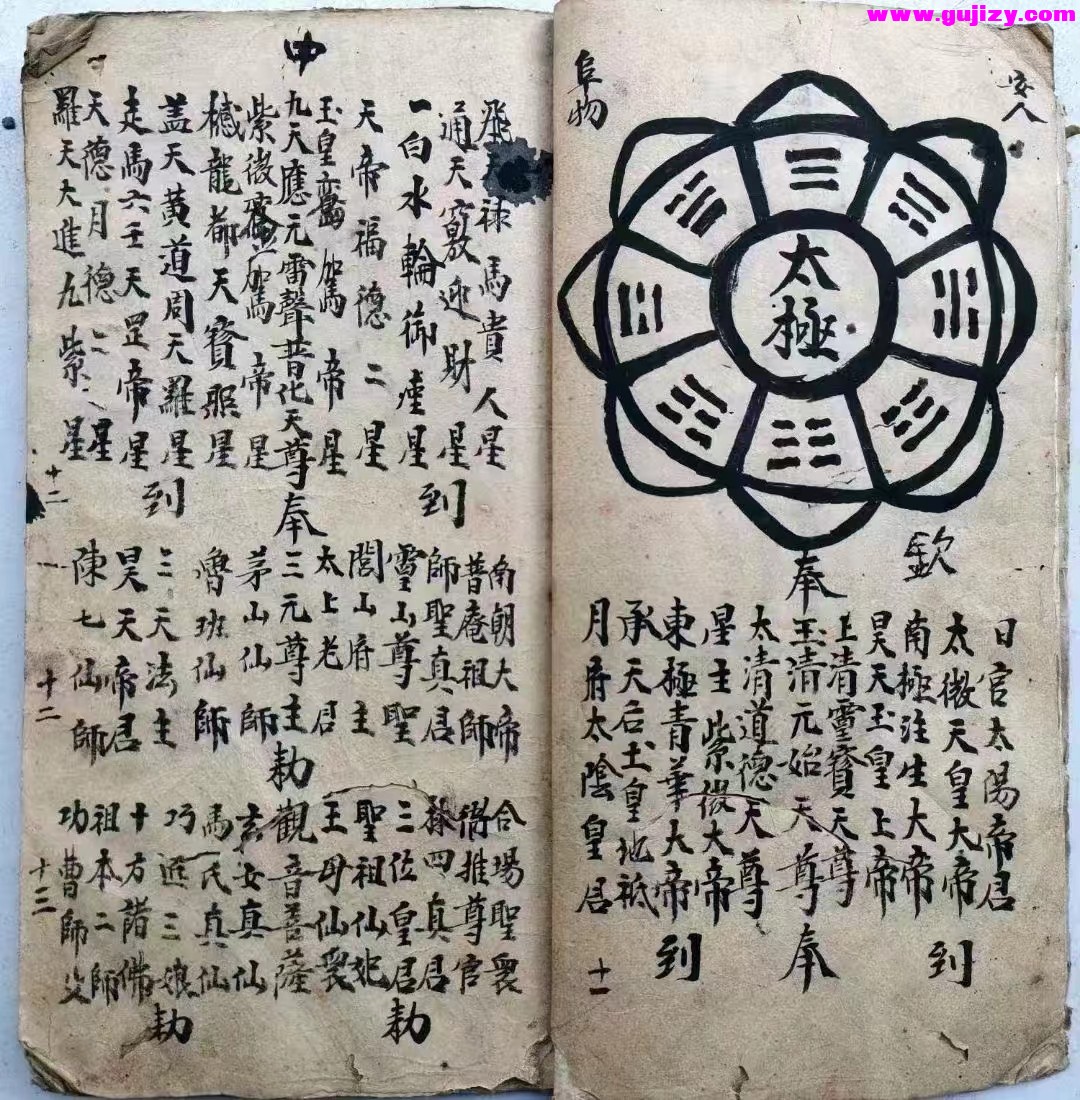 www.gujizy.com
安人
阜物
太極
欽
奉
日宫太陽帝君
太微天皇大帝
南極注生大帝
昊天玉皇上帝
上清靈寶天尊
玉清元始天尊
太清道德天尊
星主紫微大帝
東極青華大帝
承天后土皇地祇
月府太陰皇君
到
奉
到
十一
中
飛天禄馬貴人星
通天竅迎財星
一白水輪御
星
天帝福德二星
玉皇鸞駕帝星
九天應元雷聲普化天尊
紫微鑾駕帝星
撼龍都天寳照星
盖天黄道周天羅星
走馬六壬天罡帝星
天德月德二星
羅天大進九紫星
到
奉
到
十二
南朝大帝
普庵祖師
師聖真君
靈山尊聖
閭山府主
太上老君
三元尊主
茅山仙師
魯班仙師
三天法主
昊天帝君
陳七仙師
敕
一
十二
合場聖衆
推尊官
四真君
三位皇君
聖祖仙妃
王母仙衆
觀音菩薩
玄女真仙
馬氏真仙
巧
三娘
十方諸佛
祖本二師
功曹師父
敕
敕
十三